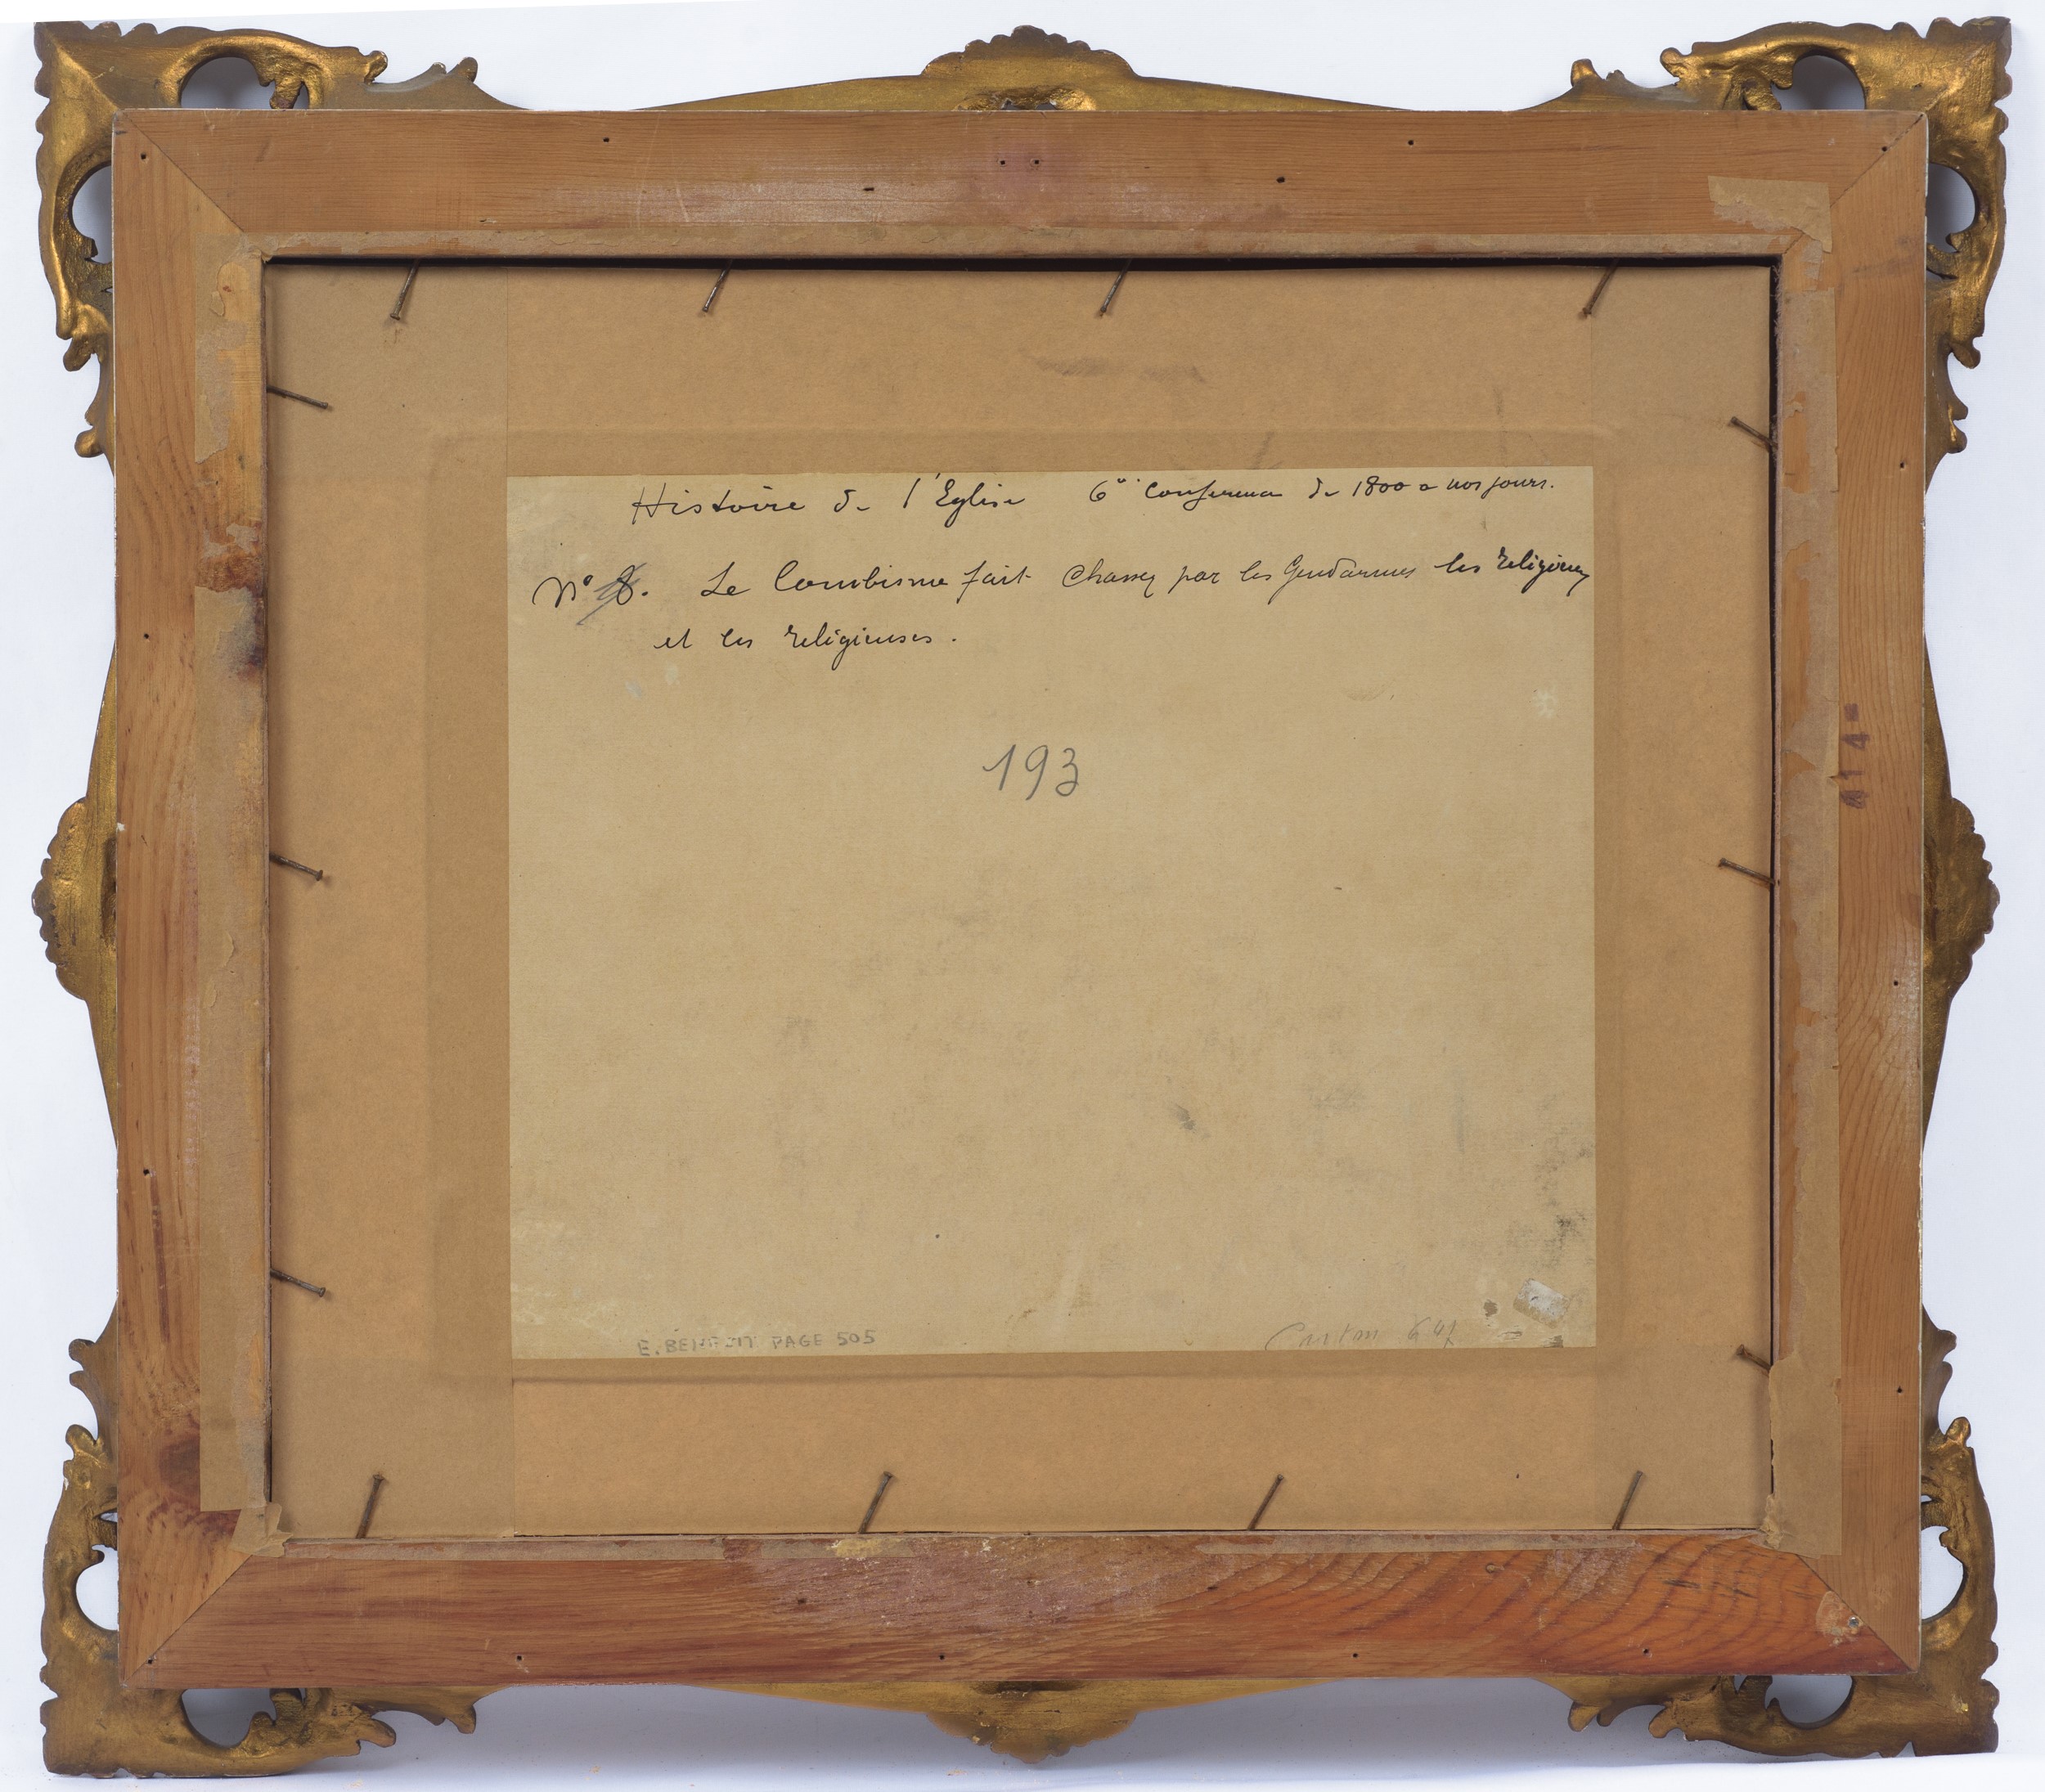 Histoire de l'Eglise 6e Conference de 1800 a nos jours.
N° 8. Le Combisme fait chasser par les Gendarmes les religieux
et les religieuses.
193
414
E. BENEZIT PAGE 505
Carton